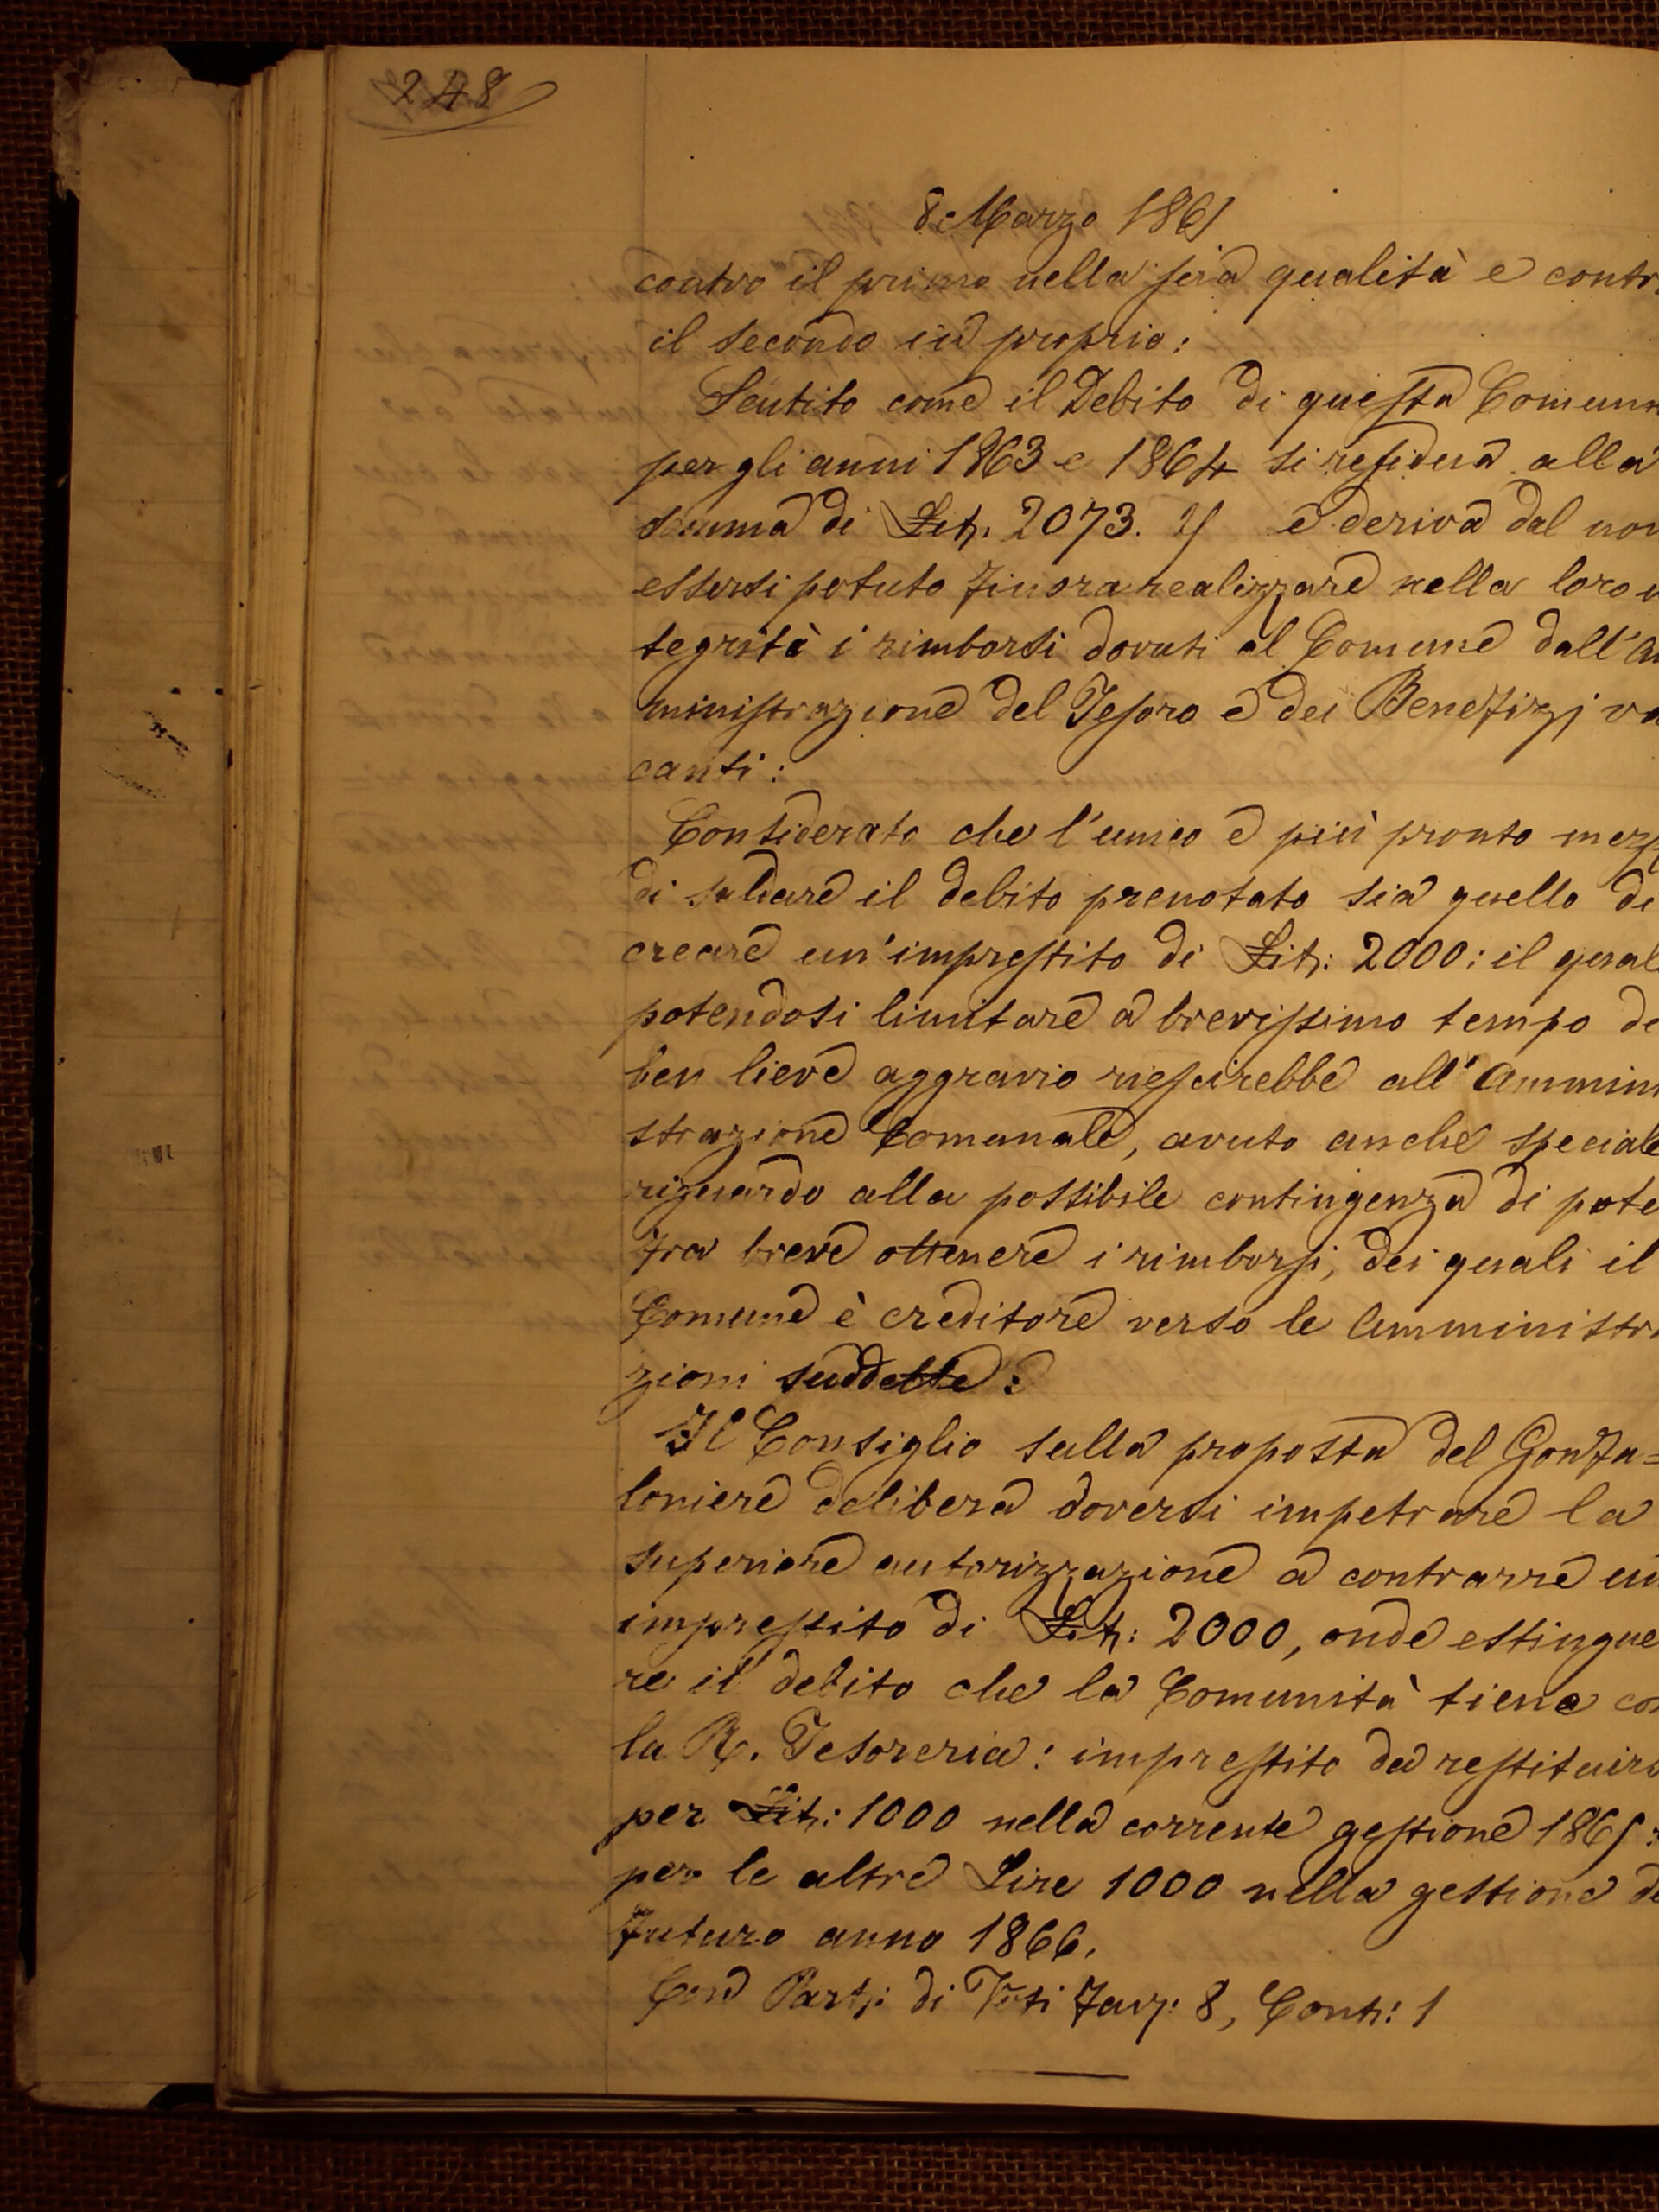 248
8 Marzo 1865
contro il primo nella sua qualità e contr
il secondo in proprio:
Sentito come il Debito di questa Comun
per gli anni 1863 e 1864 si residua alla
somma di Lit. 2073. 25 e deriva dal non
essersi potuto finora realizzare nella loro in
tegrità i rimborsi dovuti al Comune dall'Am
ministrazione del Tesoro e dei Benefizj va
canti:
Considerato che l'unico e più pronto mezz
di saldare il debito prenotato sia quello di
creare un'imprestito di Lit: 2000: il qual
potendosi limitare a brevissimo tempo di
ben lieve aggravio riescirebbe all'Ammini
strazione Comunale, avuto anche speciale
riguardo alla possibile contingenza di pote
fra breve ottenere i rimborsi, dei quali il
Comune è creditore verso le Amministra
zioni suddette:
Il Consiglio sulla proposta del Gonfa=
loniere delibera doversi impetrare la
superiore autorizzazione a contrarre un
imprestito di Lit: 2000, onde estingue
re il debito che la Comunità tiene con
la R. Tesoreria: imprestito da restituirs
per Lit: 1000 nella corrente gestione 1865:
per le altre Lire 1000 nella gestione de
futuro anno 1866.
Con Part: di Voti Fav: 8, Cont: 1